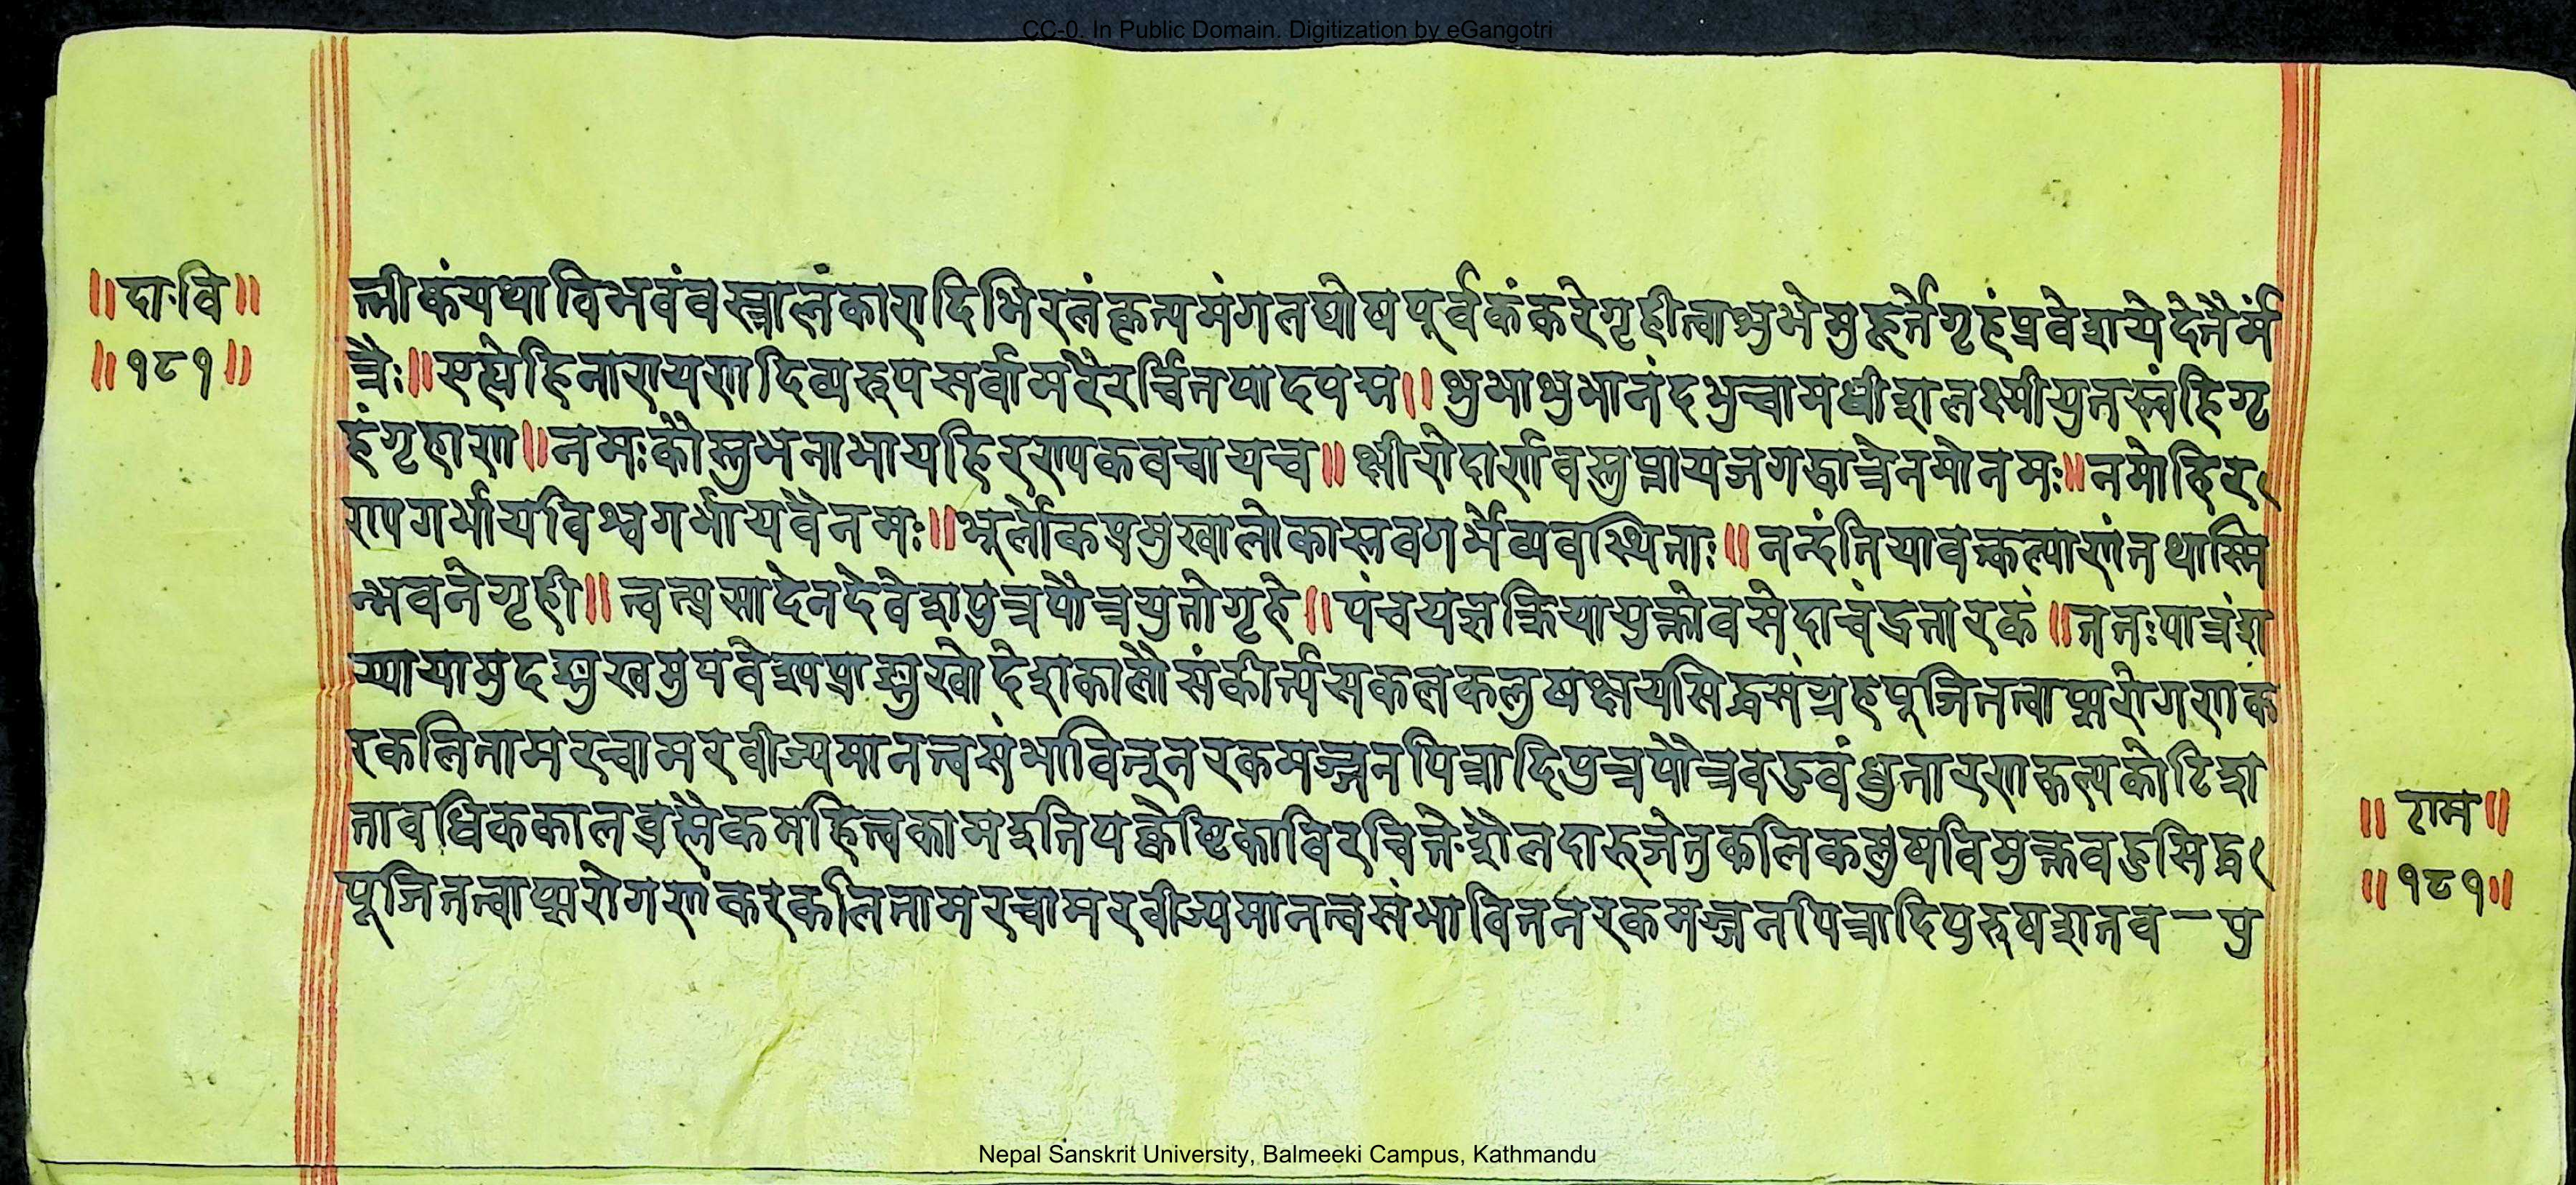 CC-0. In Public Domain. Digitization by eGangotri
॥दा·वि॥
॥१८१॥
त्नीकंयथाविभवंवस्त्रालंकारादिभिरलंकृत्यमंगलघोषपूर्वकंकरेगृहीत्वाशुभेमुहूर्त्तेगृहंप्रवेशयेदेतैर्मं
त्रैः॥एह्येहिनारायणादिव्यरूपसर्वामरैरर्चितपादपद्म॥शुभाशुभानंदशुचामधीशलक्ष्मीयुतस्त्वंहिगृ
हंगृहाण॥नमःकौस्तुभनाभायहिरण्यकवचायच॥क्षीरोदार्णवसुप्तायजगद्धात्रेनमोनमः॥नमोहिर
ण्यगर्भायविश्वगर्भायवैनमः॥भूर्लोकप्रमुखालोकास्तवगर्भेव्यवस्थिताः॥नन्दंतियावत्कल्पाणंतथास्मि
न्भवनेगृही॥त्वत्प्रसादेनदेवेशपुत्रपौत्रयुतोगृहे॥पंचयज्ञक्रियायुक्तोवसेदाचंद्रतारकं॥ततःपात्रंश
य्यायामुदङ्मुखमुपवेश्यप्राङ्मुखोदेशकालौसंकीर्त्यसकलकलुषक्षयसिद्धसंग्रहपूजितत्वाप्सरोगणक
रकलितामरचामरवीज्यमानत्वसंभावितूनरकमज्जनपित्रादिपुत्रपौत्रवडवंधुतारणकल्पकोटिश
तावधिककालब्रह्मैकमहित्वकामइतियक्वेष्टिकाविरचितेशैलदारुजेतुकलिकलुषविमुक्तवडसिद्ध
पूजितत्वाप्सरोगणंकरकलितामरचामरवीज्यमानत्वसंभावितनरकमज्जनपित्रादिपुरुषशतव-पु
॥राम॥
॥१८१॥
Nepal Sanskrit University, Balmeeki Campus, Kathmandu